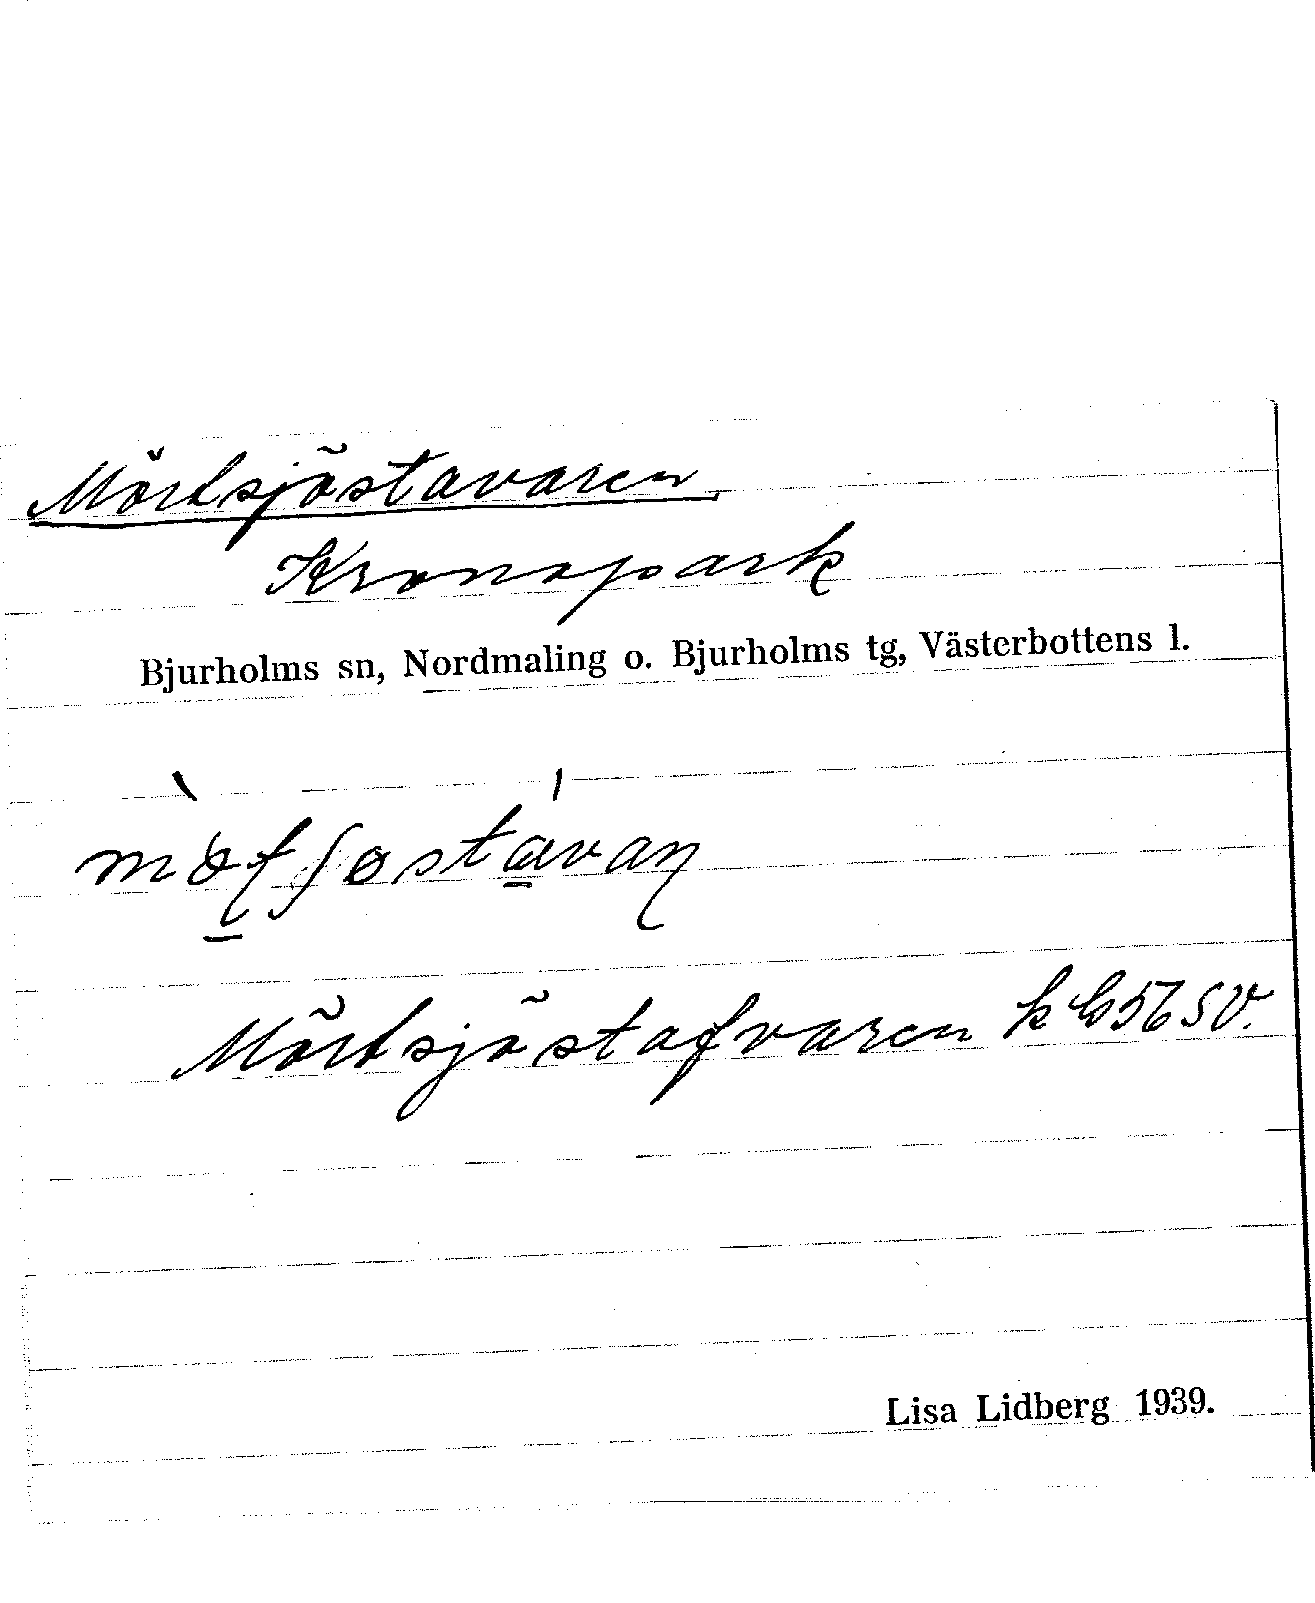 Mörtsjöstavaren
Kronopark
Bjurholms sn, Nordmaling o. Bjurholms tg, Västerbottens l.
Mörtsjöstafvaren kb 56 SV.
Lisa Lidberg 1939.